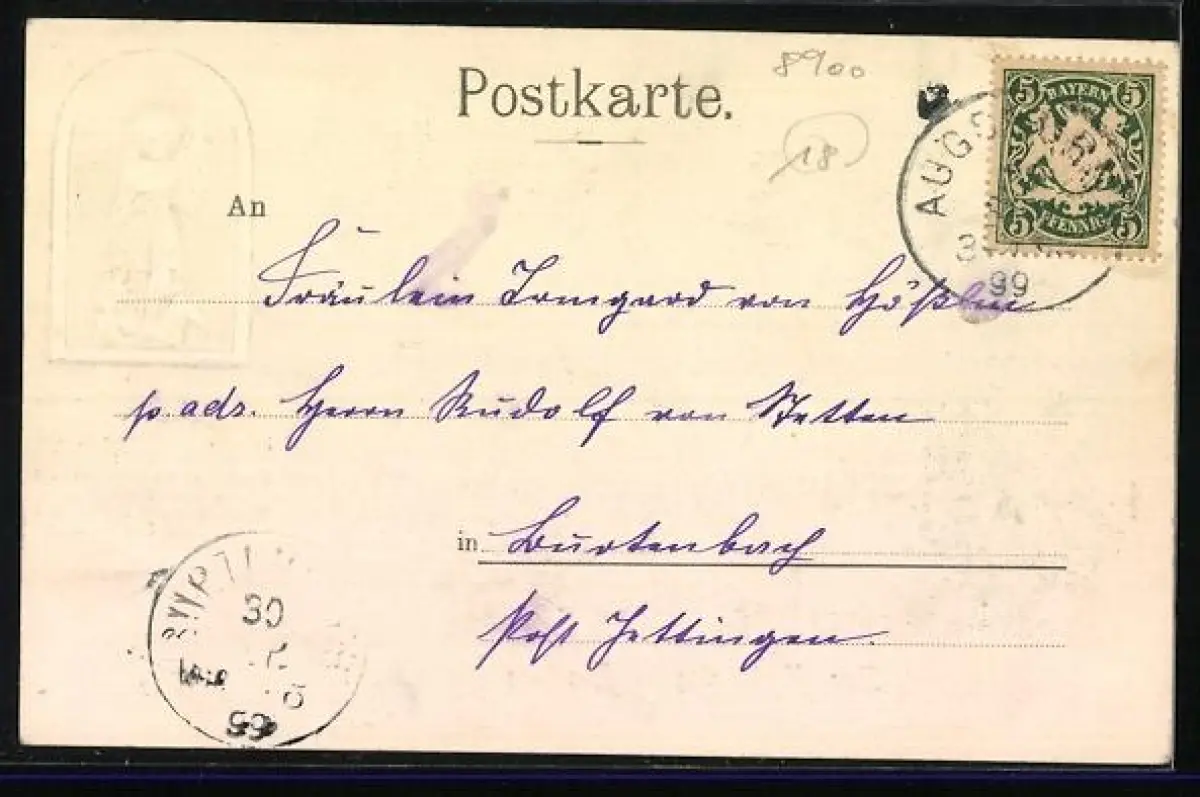 8900
Postkarte.
18
5 BAYERN 5
5 PFENNIG 5
AUGSBURG
99
An
Fräulein Irmgard von Hößlin
p. adr. Herrn Rudolf von Stetten
in Burtenbach
Post Jettingen.
30
99